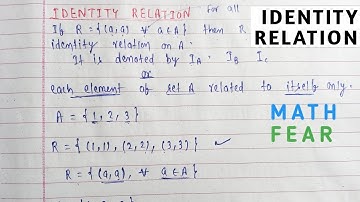 IDENTITY RELATION for all
If R = {(a,a) ∀ a∈A} then R
identity relation on A.
It is denoted by I_A. I_B I_c
or
each element of set A related to itself only.
A = {1, 2, 3}
R = {(1,1), (2,2), (3,3)} ✓
R = {(a,a), ∀ a∈A}
IDENTITY
RELATION
MATH
FEAR